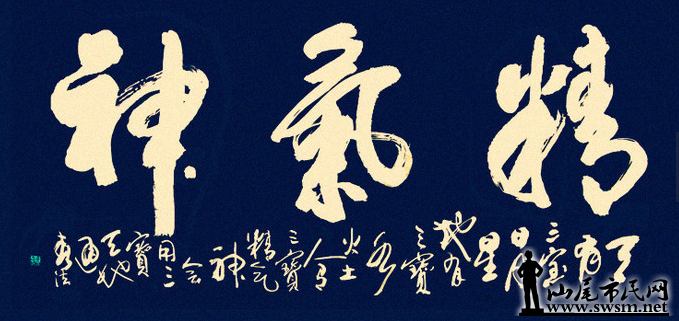 精氣神
天有三宝日月星地有三寶水火土人有三寶精气神会用三寶天地通
汕尾市民网
www.swsm.net